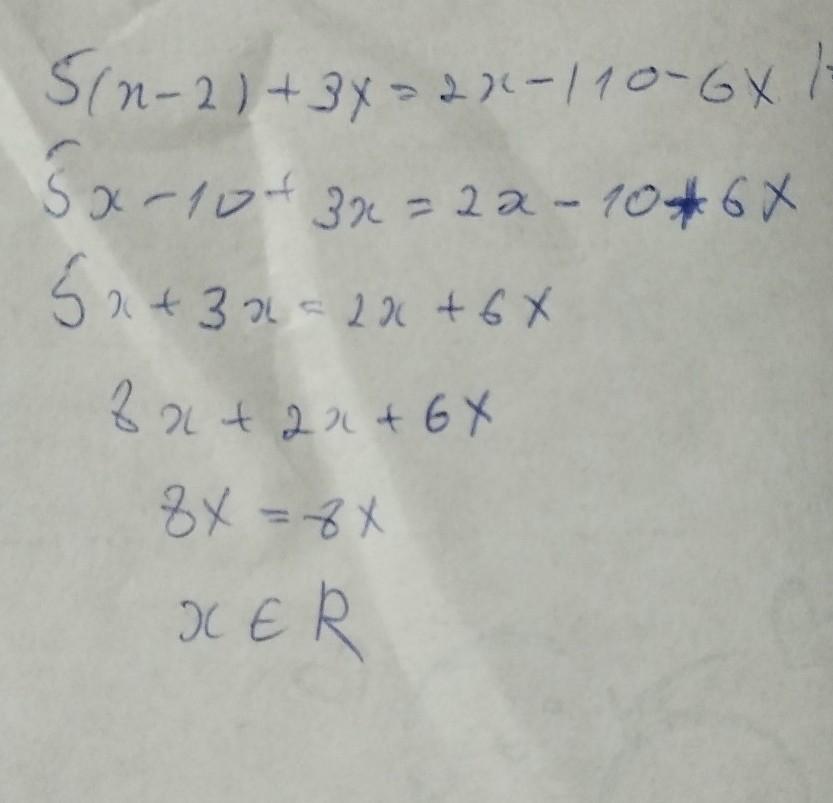 5(x-2)+3x=2x-(10-6x)
5x-10+3x=2x-10+6x
5x+3x=2x+6x
8x+2x+6x
8x=8x
x∈R